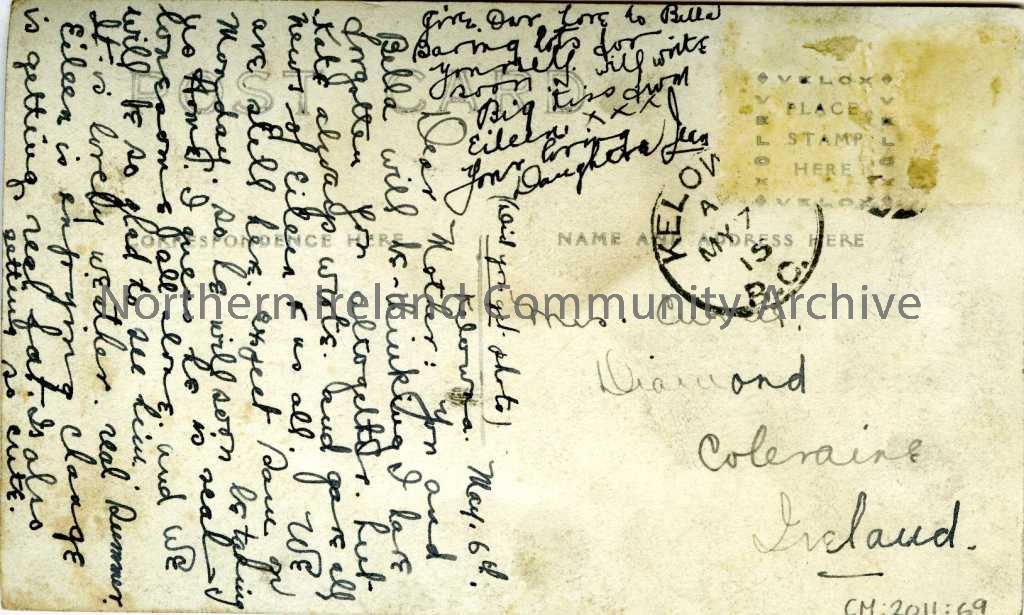 POST CARD
CORRESPONDENCE HERE
NAME AND ADDRESS HERE
VELOX
PLACE
STAMP
HERE
VELOX
KELOW
A
MY 7
15
B.C.
(Said you got photo)
Kelowna. May. 6th.
Dear Mother: you and
Bella will be thinking I have
forgotten you altogether. but
Kate always writes. and gave all
news of Eileen & us all. WE
are still here. expect Sam on
Monday. so he will soon be taking
us Home. I guess he is real
lonesome all alone and WE
will be so glad to see him.
It is lovely weather. real Summer.
Eileen is enjoying change
is getting reel fat. Is also
getting so cute.
Give Our Love to Bella
Baring lots for
yourself. Will write
soon
Big kiss from
Eileen X X X
Your loving
Daughter
Mrs.
Diamond
Coleraine
Ireland.
Northern Ireland Community Archive
CM:2011:69